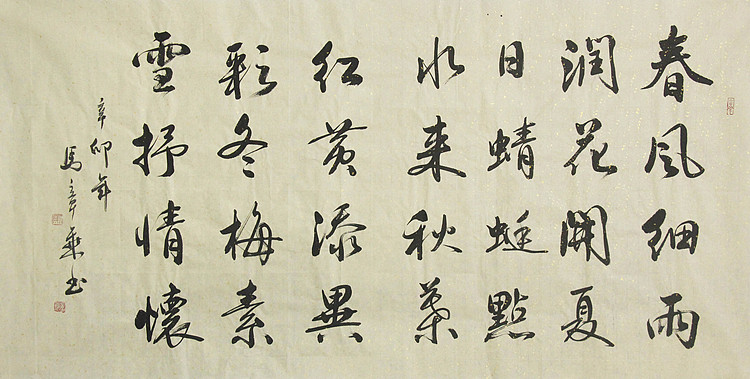 春風細雨
潤花開夏
日蜻蜓點
水來秋葉
紅黄添異
彩冬梅素
雪抒情懷
辛卯年
馬章乘书